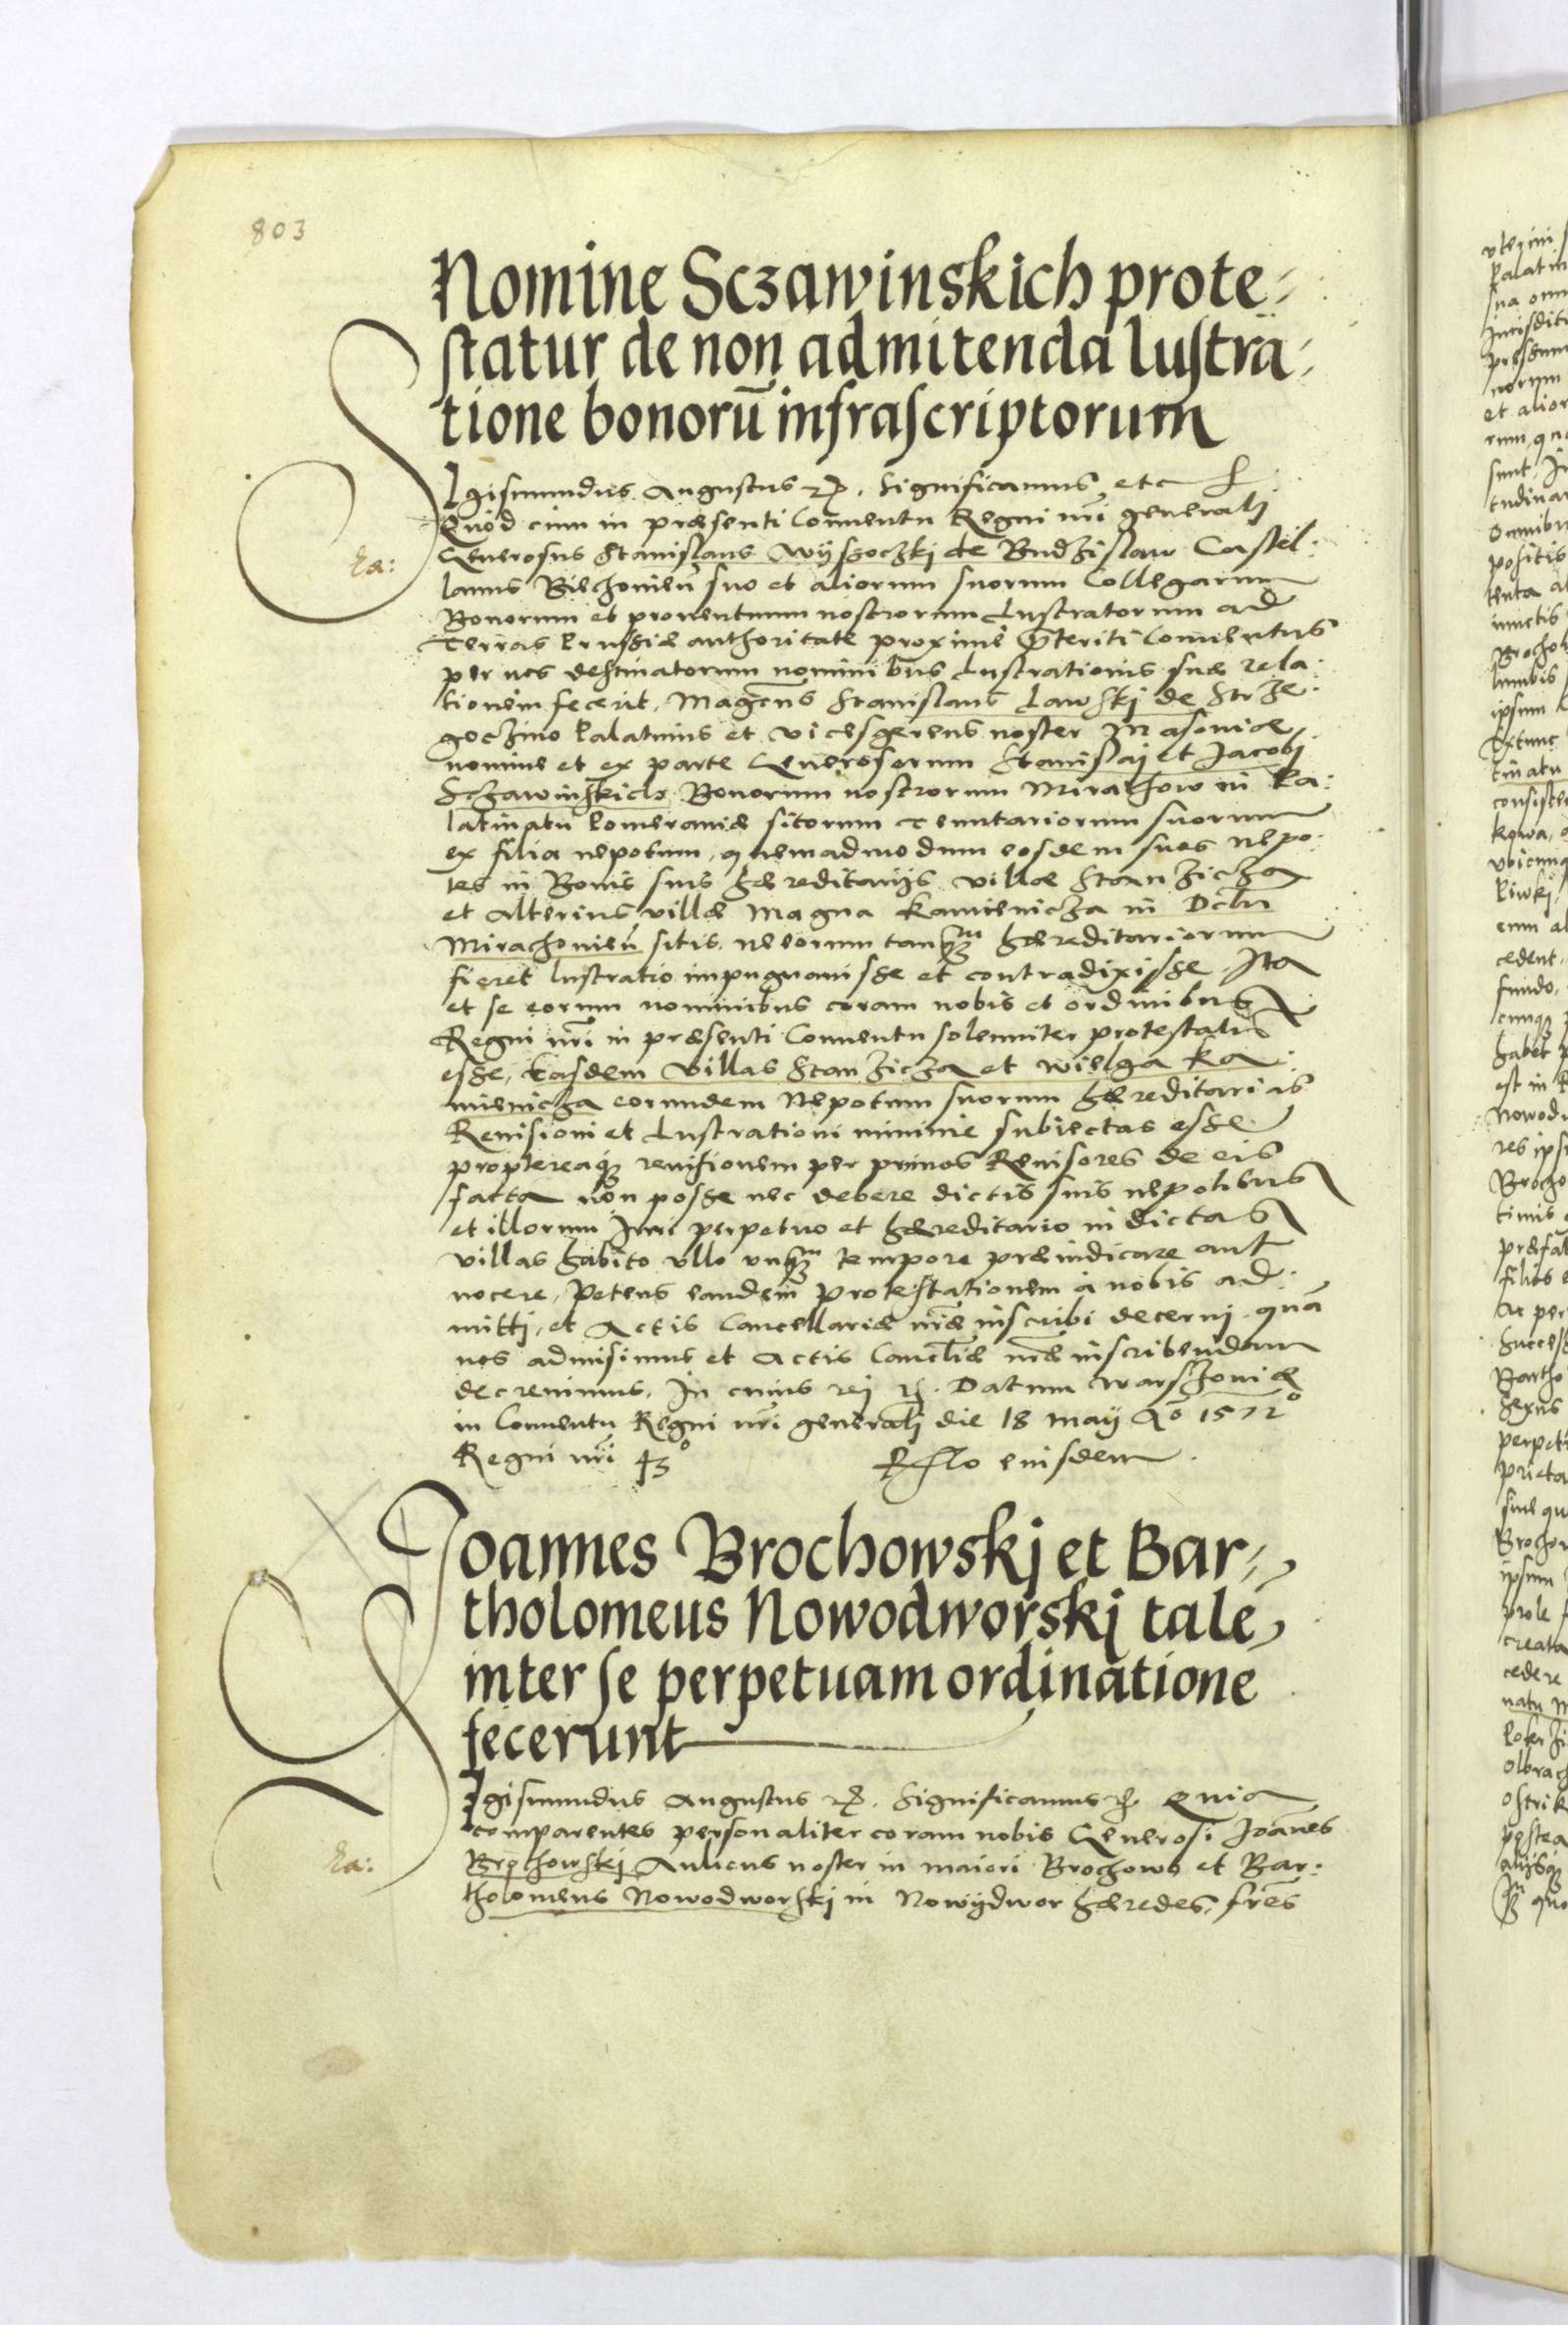 803
Nomine Sczawinskich prote-
statur de non admitenda lustra-
tione bonorū infrascriptorum
Sigismundus Augustus etc. Significamus etc
Quod cum in præsenti Conventu Regni nr̄i generalj
Generosus Stanislaus Wyssoczkj de Budzislaw Castel:
lanus Biechovien̄ suo et aliorum suorum Collegarum
Ra:
Bonorum et proventuum nostrorum Lustratorum ad
Terras Prussiæ authoritate proxime præteriti Conventus
per nos destinatorum nominibus Lustrationis suæ rela:
tionem fecerit, Magcūs Stanislaus Lawskj de Strze:
goczino Palatinus et vicesgerens noster Masoviæ
nomine et ex parte Generosorum Stanislaj et Jacobj
Sczawinskich Bonorum nostrorum Mirachow in Pa:
latinatu Pomeraniæ sitorum tenutariorum suorum
ex filia nepotum, quemadmodum eosdem suos nepo:
tes in Bonis suis hæreditarijs villæ Stanzicza
et alterius villæ Magna Kamienicza in Dctu
Mirachovien̄ sitis, ne eorum tanq̄m hæreditariorum
fieret lustratio impugnavisse et contradixisse. Ita
et se eorum nominibus coram nobis et ordinibus
Regni nr̄i in præsenti Conventu solenniter protestatus
esse, Easdem Villas Stanzicza et Wielga Ka:
mienicza eorundem Nepotum suorum hæreditarias
Revisioni et Lustrationi minime subiectas esse
proptereaq̄ revisionem per primos Revisores de eis
facta non posse nec debere dictis suis nepotibus
et illorum Juri perpetuo et hæreditario in dictas
villas habito ullo unq̄m tempore præiudicare aut
nocere, Petens eandem Protestationem à nobis ad:
mitti, et Actis Cancellariæ nr̄æ inscribi decerni. quā
nos admisimus et Actis Cancell̄iæ nr̄æ inscribendam
decrevimus. In cuius rej etc. Datum Warszoviæ
in Conventu Regni nr̄i generalj die 18 Maij Ao 1572o
Regni nr̄i 43o Rslo eiusdem.
Joannes Brochowskj et Bar-
tholomeus Nowodworskj tale
inter se perpetuam ordinatione
fecerunt
Sigismundus Augustus etc. Significamus etc. Quia
comparentes personaliter coram nobis Generosi Joānes
Brochowskj Aulicus noster in maiori Brochowo et Bar:
Ra:
tholomeus Nowodworskj in Nowydwor hæredes, fr̄es